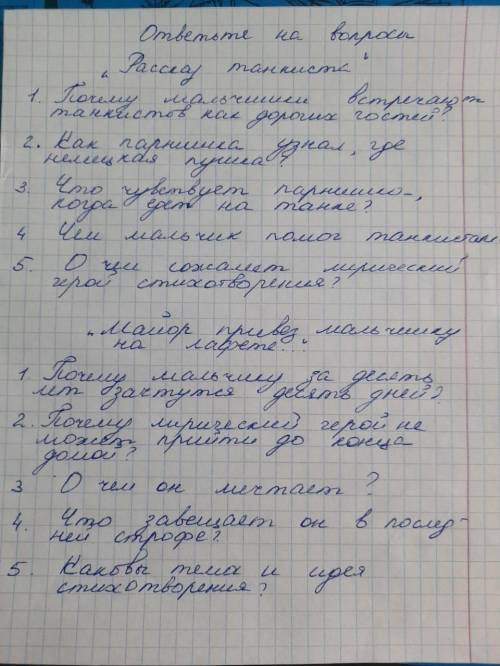 Ответьте на вопросы
„Рассказ танкиста"
1. Почему мальчишки встречают
танкистов как дорогих гостей?
2. Как парнишка узнал, где
немецкая пушка?
3. Что чувствует парнишка,
когда едет на танке?
4 Чем мальчик помог танкистам
5. О чем сожалеет лирический
герой стихотворения?
„Майор привез мальчишку
на лафете..."
1 Почему мальчику за десять
лет зачтутся десять дней?
2. Почему лирический герой не
может прийти до конца
домой?
3 О чем он мечтает?
4. Что завещает он в послед-
ней строфе?
5. Каковы тема и идея
стихотворения?